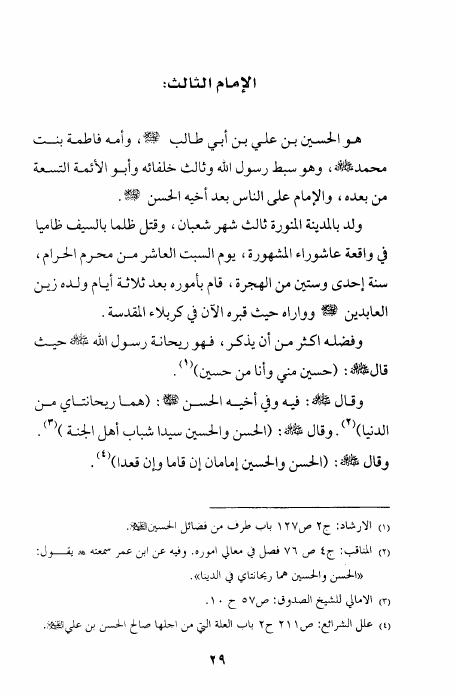 الإمام الثالث:
هو الحسين بن علي بن أبي طالب ، وأمه فاطمة بنت
محمدﷺ، وهو سبط رسول الله وثالث خلفائه وأبو الأئمة التسعة
من بعده، والإمام على الناس بعد أخيه الحسن .
ولد بالمدينة المنورة ثالث شهر شعبان، وقتل ظلما بالسيف ظاميا
في واقعة عاشوراء المشهورة، يوم السبت العاشر من محرم الحرام،
سنة إحدى وستين من الهجرة، قام بأموره بعد ثلاثة أيام ولده زين
العابدين  وواراه حيث قبره الآن في كربلاء المقدسة.
وفضله اكثر من أن يذكر، فهو ريحانة رسول الله ﷺ حيث
قالﷺ: (حسين مني وأنا من حسين)(١).
وقال ﷺ: فيه وفي أخيه الحسن : (هما ريحانتاي من
الدنيا)(٢). وقال ﷺ: (الحسن والحسين سيدا شباب أهل الجنة )(٣).
وقال ﷺ: (الحسن والحسين إمامان إن قاما وإن قعدا)(٤).
(١) الارشاد: ج٢ ص١٢٧ باب طرف من فضائل الحسين.
(٢) المناقب: ج٤ ص ٧٦ فصل في معالي اموره. وفيه عن ابن عمر سمعته  يقول:
«الحسن والحسين هما ريحانتاي في الدينا».
(٣) الامالي للشيخ الصدوق: ص٥٧ ح ١٠.
(٤) علل الشرائع: ص٢١١ ح٢ باب العلة التي من اجلها صالح الحسن بن علي.
٢٩